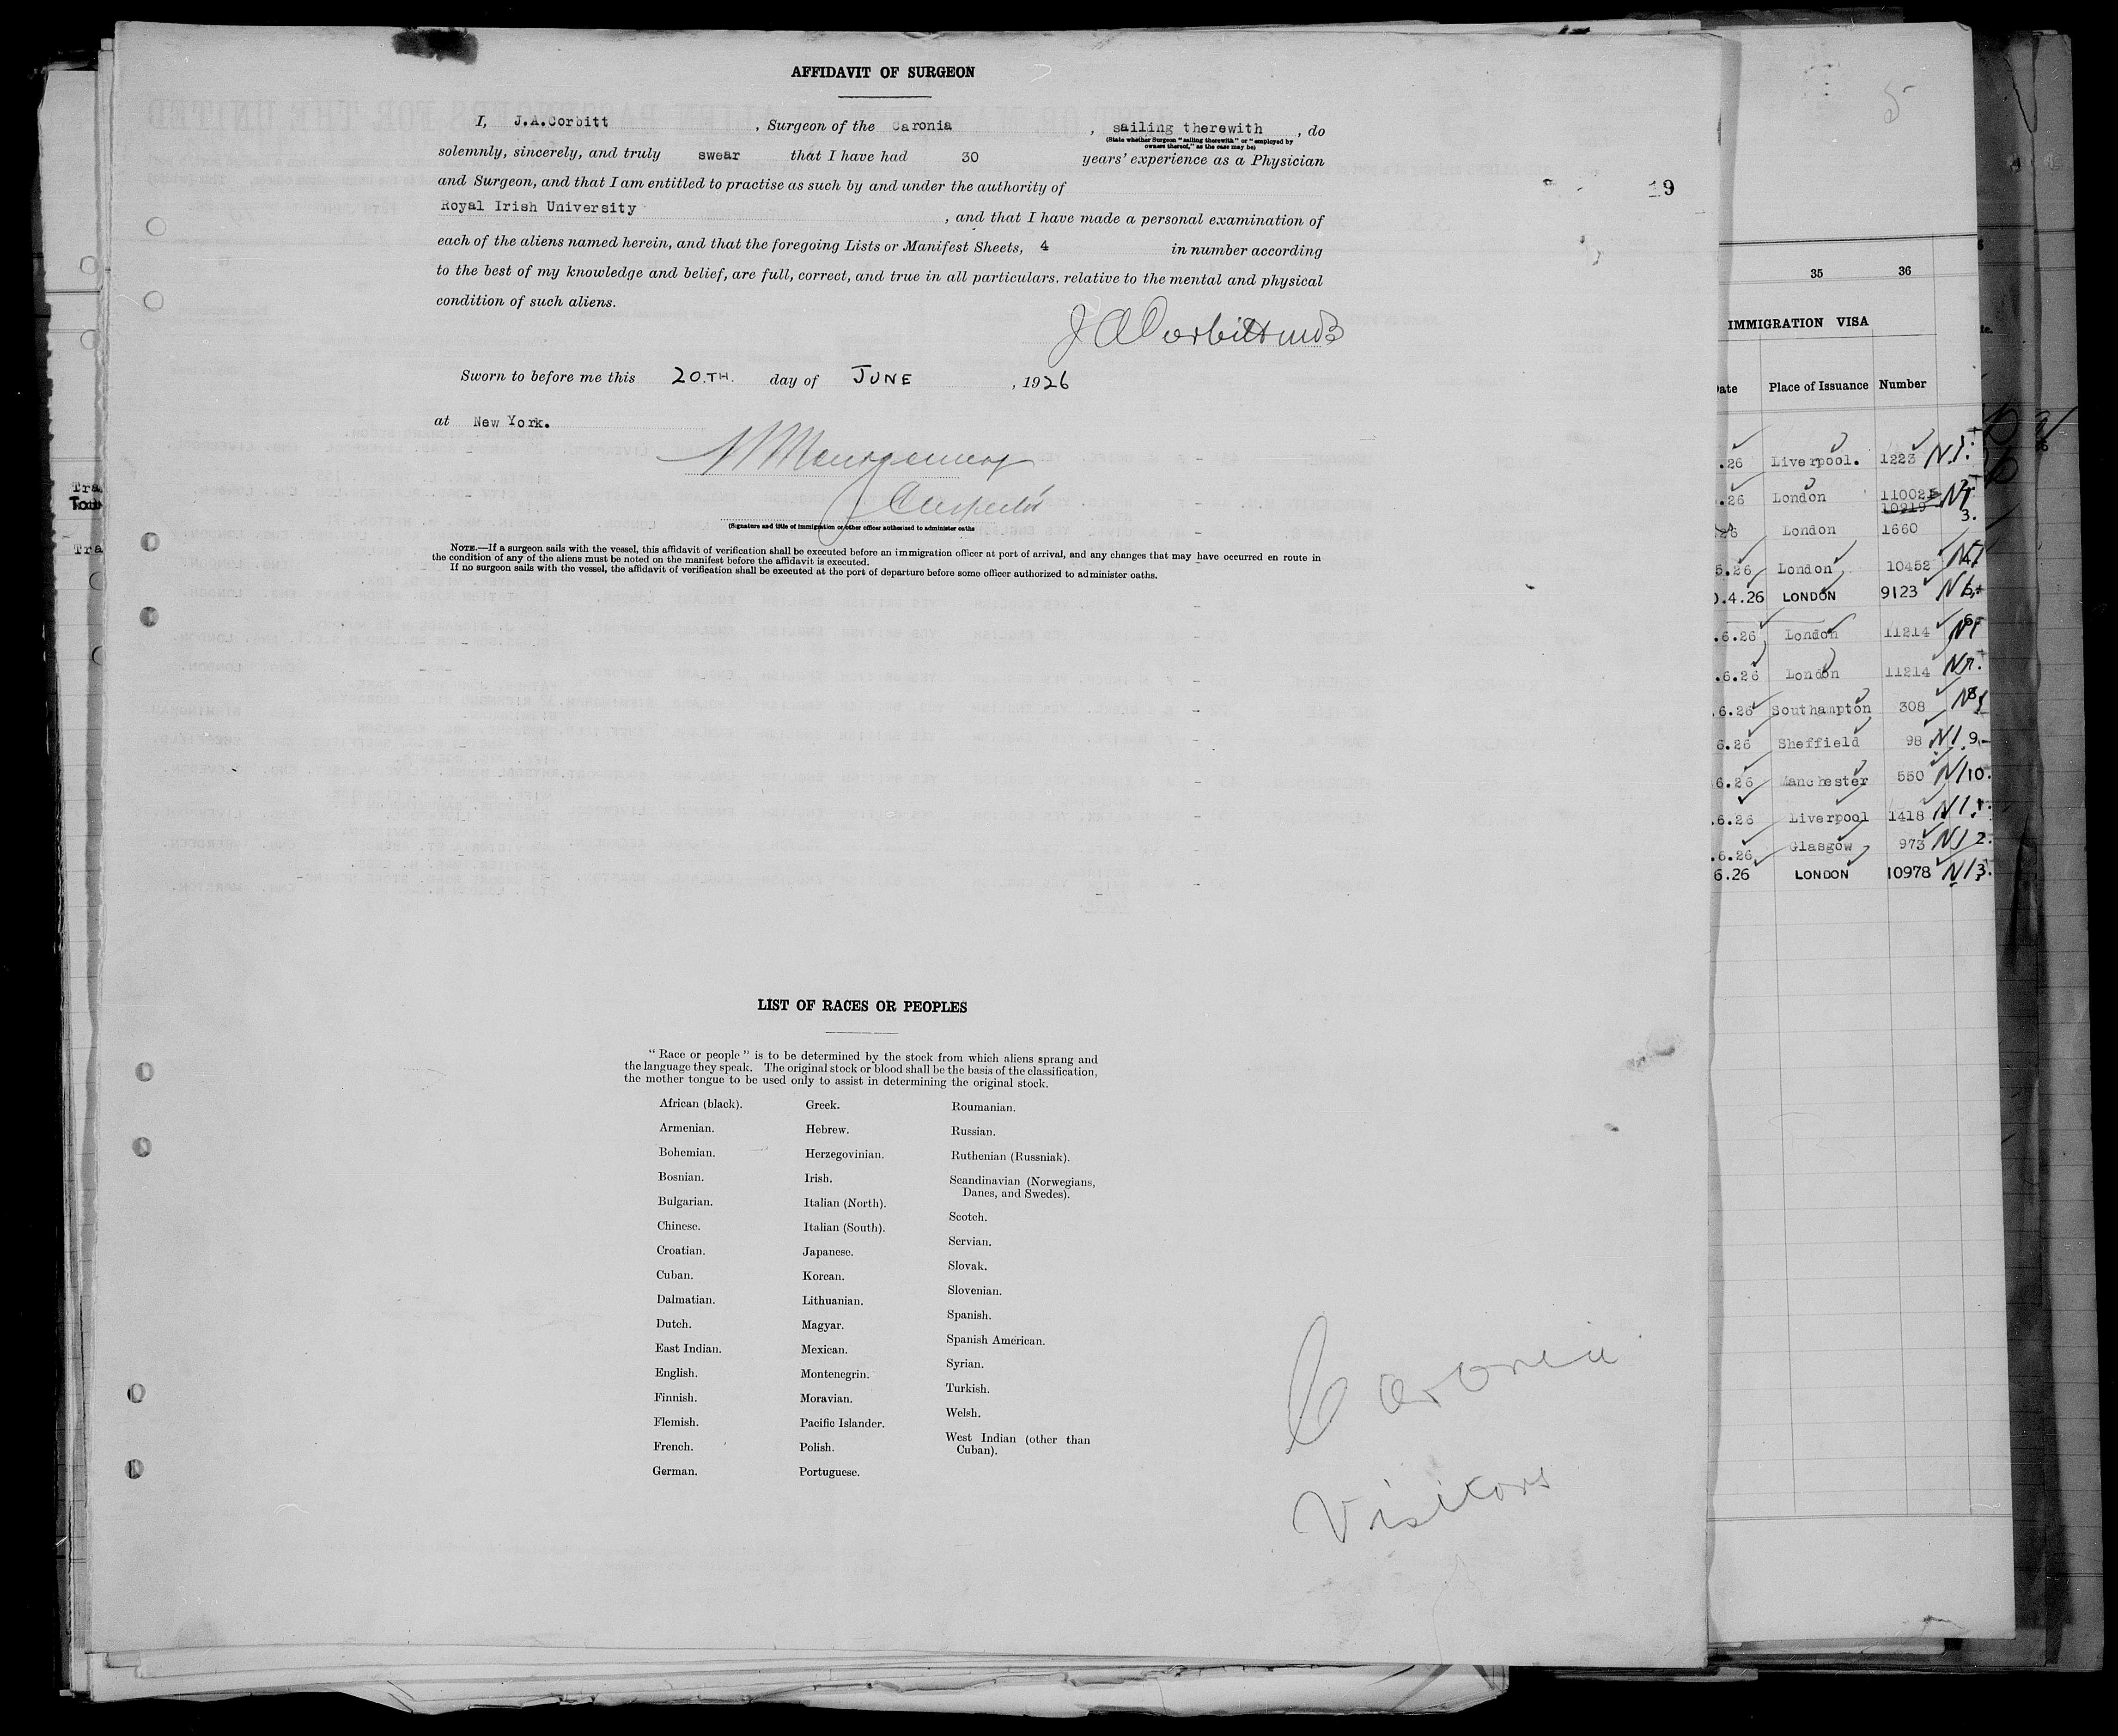 AFFIDAVIT OF SURGEON
I, J.A.Corbitt , Surgeon of the Caronia , sailing therewith , do
(State whether Surgeon "sailing therewith" or "employed by
owners thereof," as the case may be)
solemnly, sincerely, and truly swear that I have had 30 years' experience as a Physician
and Surgeon, and that I am entitled to practise as such by and under the authority of
19
Royal Irish University , and that I have made a personal examination of
each of the aliens named herein, and that the foregoing Lists or Manifest Sheets, 4 in number according
to the best of my knowledge and belief, are full, correct, and true in all particulars, relative to the mental and physical
condition of such aliens.
J A Corbitt MB
Sworn to before me this 20.TH. day of JUNE , 1926
at New York.
Inspector
(Signature and title of immigration or other officer authorized to administer oaths
NOTE.—If a surgeon sails with the vessel, this affidavit of verification shall be executed before an immigration officer at port of arrival, and any changes that may have occurred en route in
the condition of any of the aliens must be noted on the manifest before the affidavit is executed.
If no surgeon sails with the vessel, the affidavit of verification shall be executed at the port of departure before some officer authorized to administer oaths.
LIST OF RACES OR PEOPLES
"Race or people" is to be determined by the stock from which aliens sprang and
the language they speak. The original stock or blood shall be the basis of the classification,
the mother tongue to be used only to assist in determining the original stock.
African (black).
Armenian.
Bohemian.
Bosnian.
Bulgarian.
Chinese.
Croatian.
Cuban.
Dalmatian.
Dutch.
East Indian.
English.
Finnish.
Flemish.
French.
German.
Greek.
Hebrew.
Herzegovinian.
Irish.
Italian (North).
Italian (South).
Japanese.
Korean.
Lithuanian.
Magyar.
Mexican.
Montenegrin.
Moravian.
Pacific Islander.
Polish.
Portuguese.
Roumanian.
Russian.
Ruthenian (Russniak).
Scandinavian (Norwegians,
Danes, and Swedes).
Scotch.
Servian.
Slovak.
Slovenian.
Spanish.
Spanish American.
Syrian.
Turkish.
Welsh.
West Indian (other than
Cuban).
Caronia
Visitors
5
35 36
IMMIGRATION VISA
Date Place of Issuance Number
.26 Liverpool. 1223
.26 London 11002
10919
26 London 1660 3.
6.26 London 10452
0.4.26 LONDON 9123
.6.26 London 11214
.6.26 London 11214
.6.26 Southampton 308
6.26 Sheffield 98 9
6.26 Manchester 550 10.
.6.26 Liverpool 1418
.6.26 Glasgow 973 12.
6.26 LONDON 10978 13.
Tra
Tra